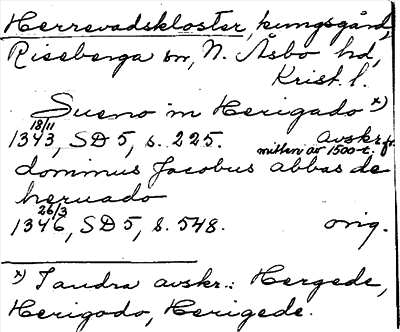 Herrevadskloster, kungsgård,
Riseberga sn, N. Åsbo hd,
Krist. l.
Sueno in Herigado x)
18/11
1343, SD 5, s. 225. Avskr. fr.
mitten av 1500-t.
dominus Jacobus abbas de
heruado
26/3
1346, SD 5, s. 548. orig.
x) I andra avskr.: Hergede,
Herigodo, Herigede.